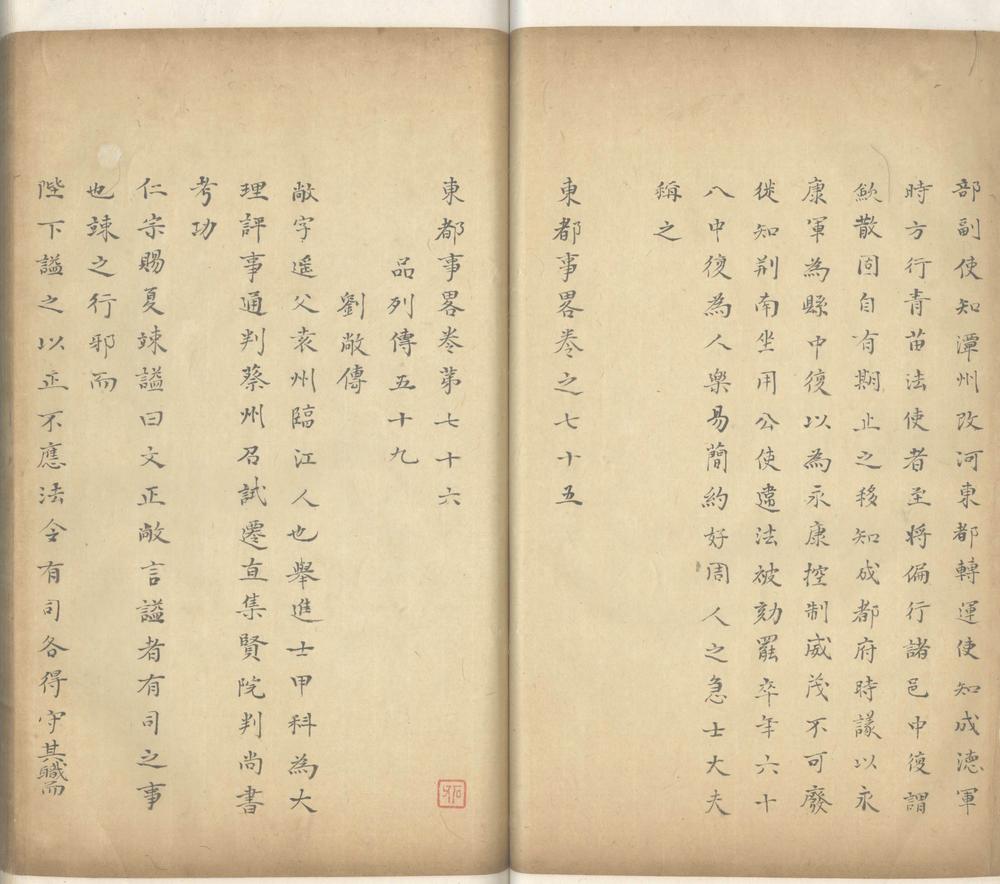 部副使知潭州改河東都轉運使知成徳軍
時方行青苗法使者至將偏行諸邑中復謂
歛散固自有期止之移知成都府時議以永
康軍為縣中復以為永康控制威茂不可廢
徙知荆南坐用公使違法被劾罷卒年六十
八中復為人樂易簡約好周人之急士大夫
稱之
東都事畧卷之七十五
東都事畧卷第七十六
品列傳五十九
劉敞傳
敞字遥父袁州臨江人也舉進士甲科為大
理評事通判蔡州召試遷直集賢院判尚書
考功
仁宗賜夏竦謚曰文正敞言謚者有司之事
也竦之行邪而
陛下謚之以正不應法令有司各得守其職而